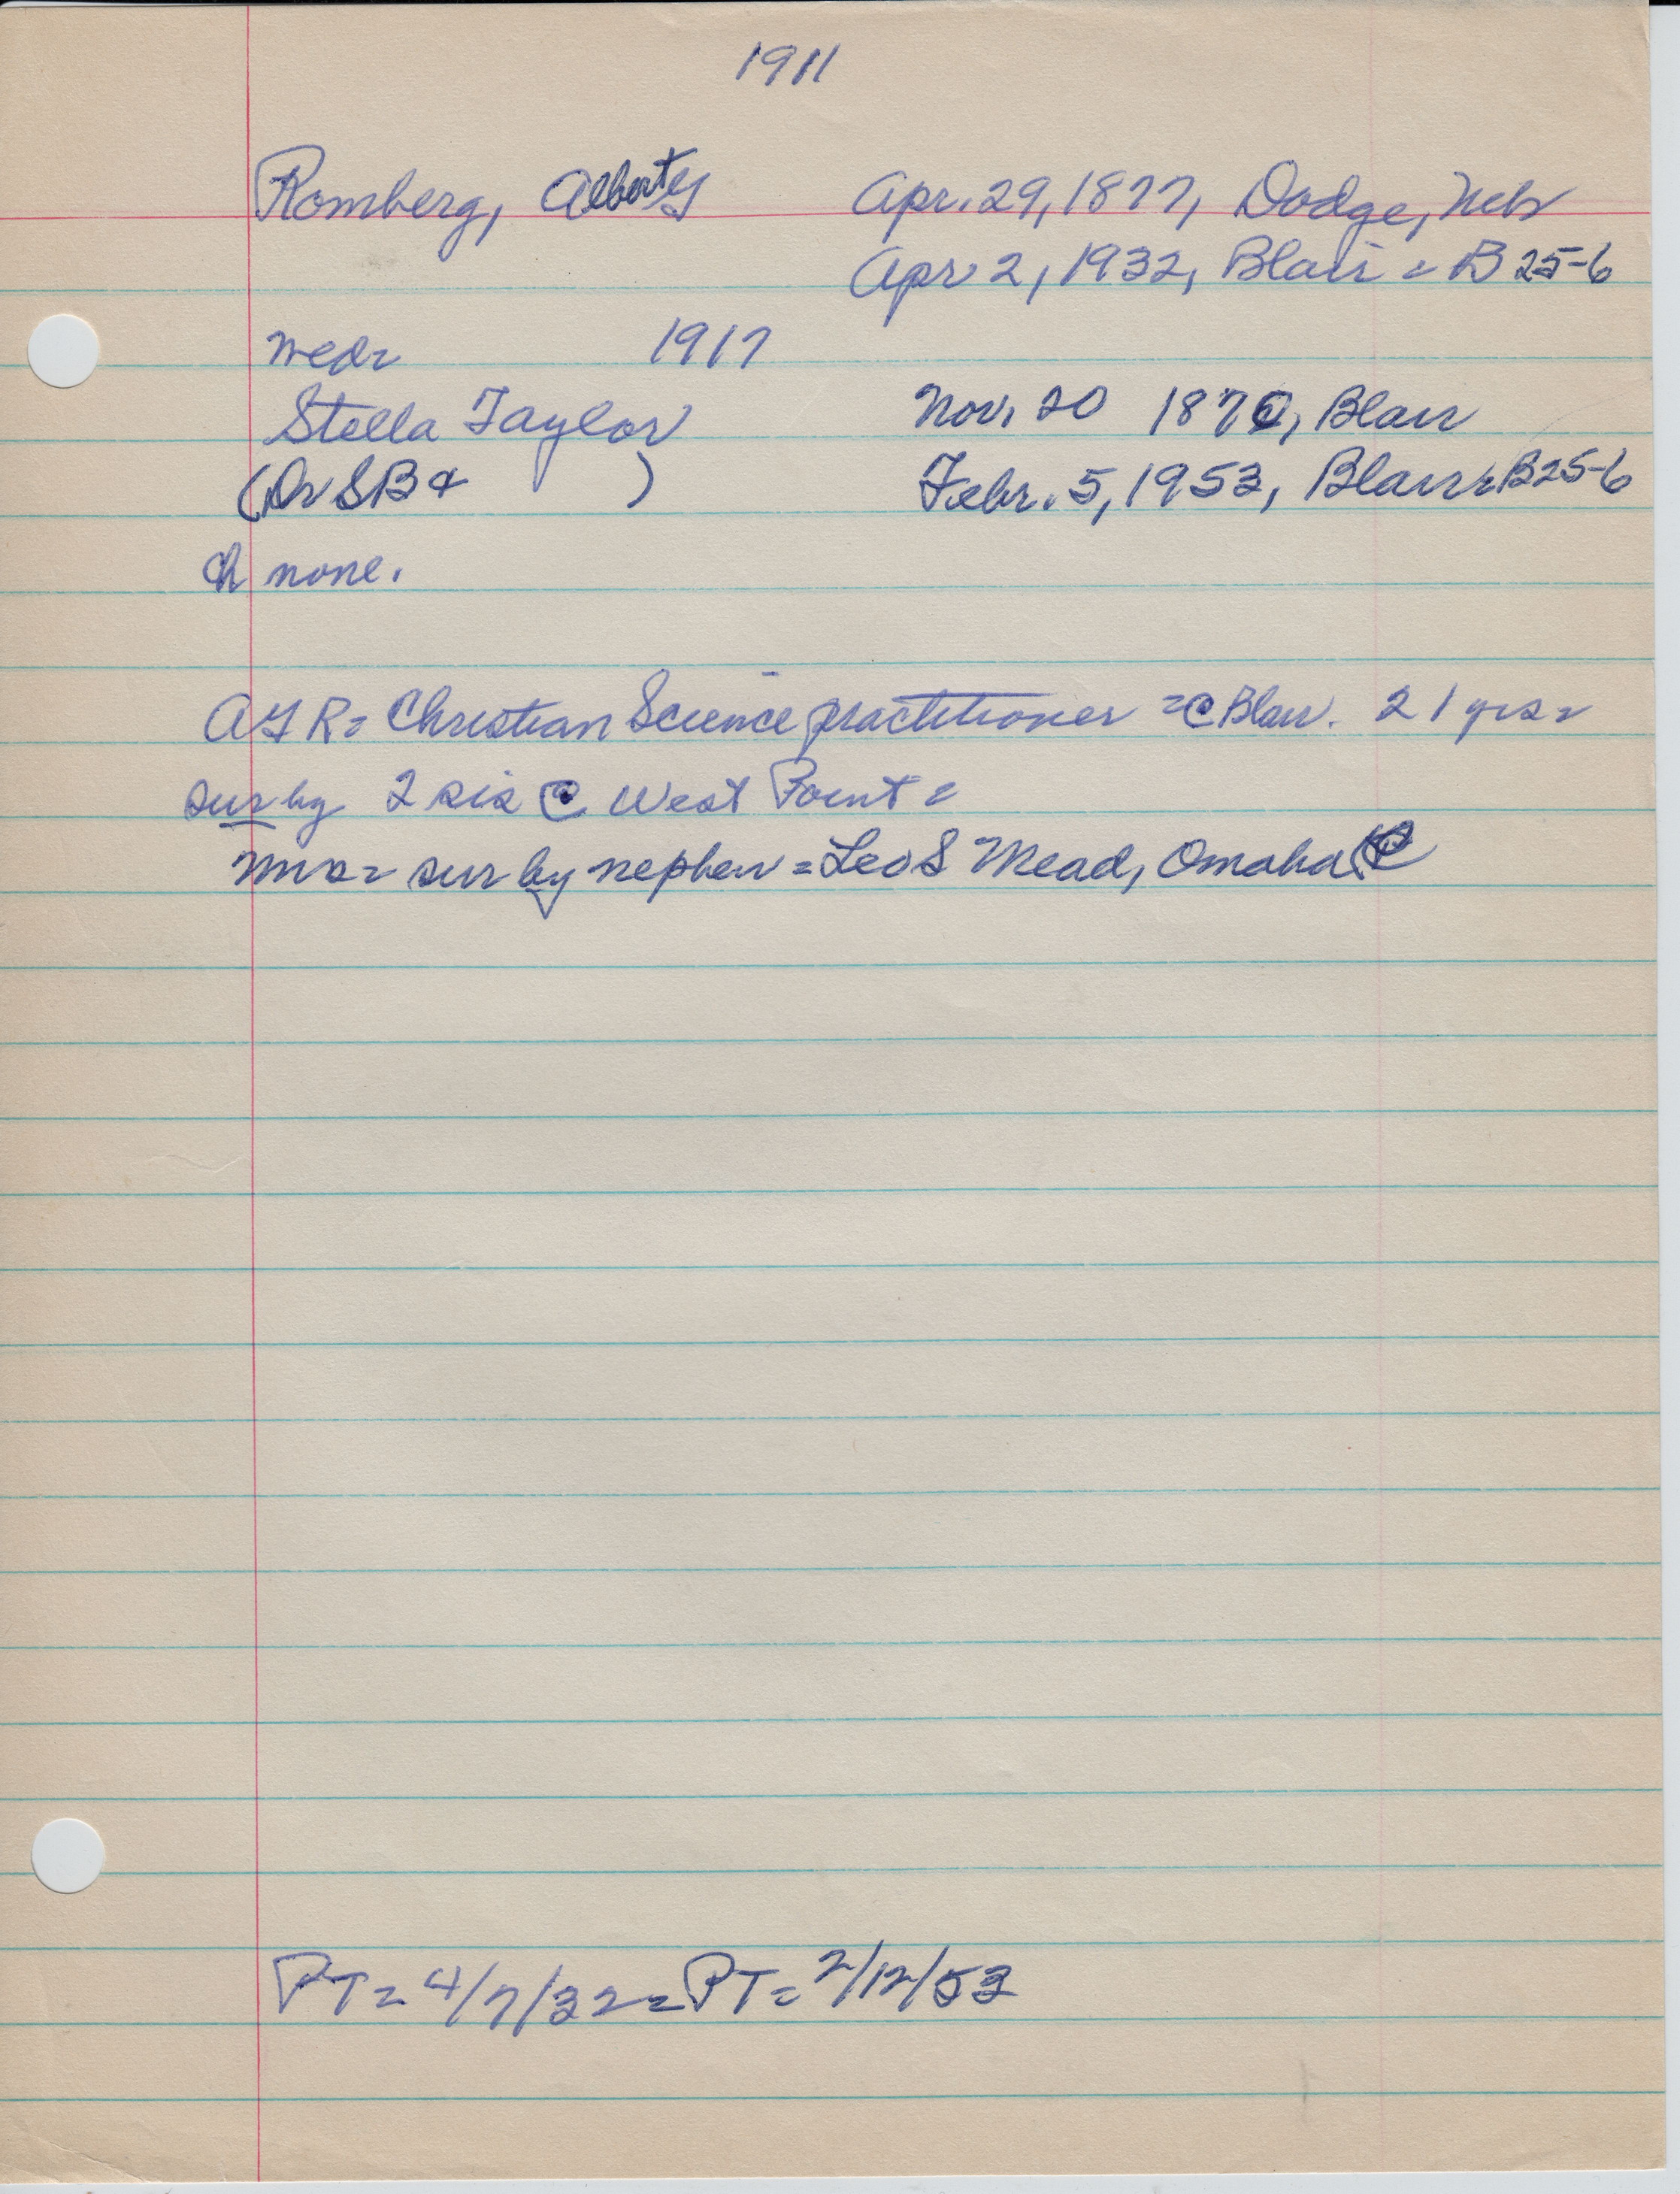 1911
Romberg, Albert G Apr. 29, 1877, Dodge, Nebr
Apr 2, 1932, Blair = B 25-6
wed= 1917
Stella Taylor Nov. 20 1870, Blair
(Dr S B & ) Febr. 5, 1953, Blair = B25-6
Ch none.
A G R = Christian Science practitioner = @ Blair. 21 yrs =
sur by 2 sis @ West Point =
Mrs = sur by nephew = Leo S Mead, Omaha
PT = 4/7/32 = PT = 2/12/53